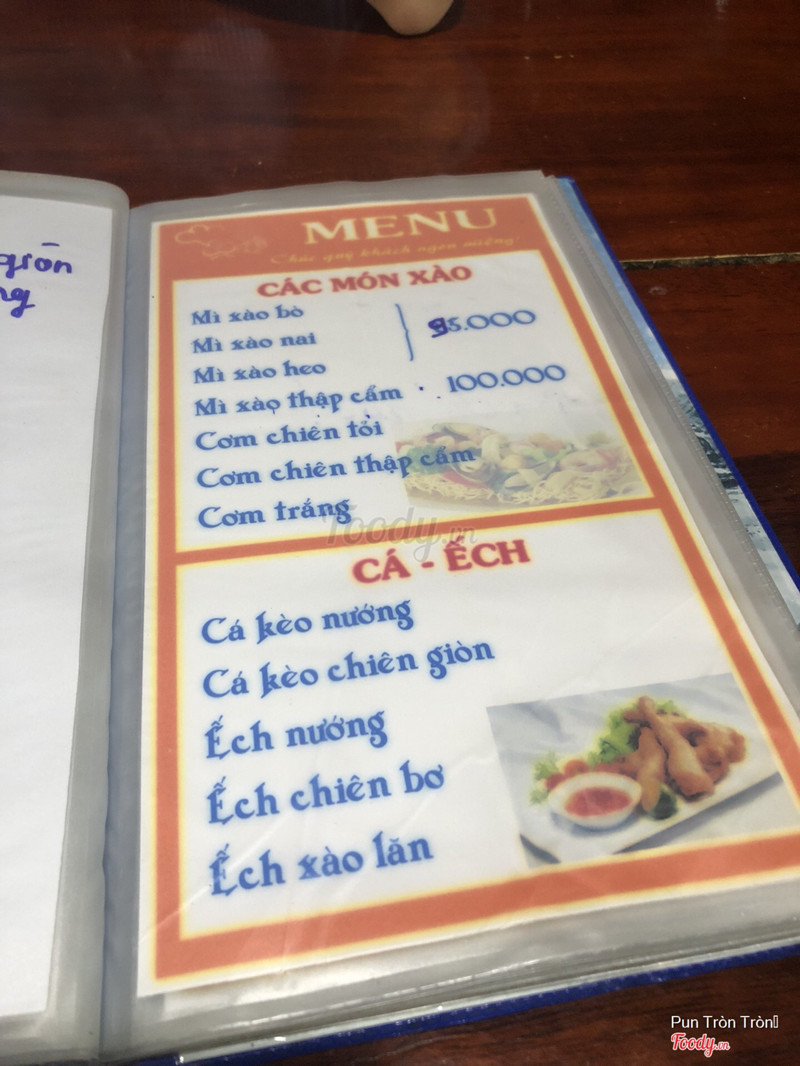 giòn
MENU
Chúc quý khách ngon miệng!
CÁC MÓN XÀO
Mì xào bò
Mì xào nai
95.000
Mì xào heo
Mì xào thập cẩm 100.000
Cơm chiên tỏi
Cơm chiên thập cẩm
Cơm trắng
Foody.vn
CÁ - ẾCH
Cá kèo nướng
Cá kèo chiên giòn
Ếch nướng
Ếch chiên bơ
Ếch xào lăn
Pun Tròn Tròn
Foody.vn